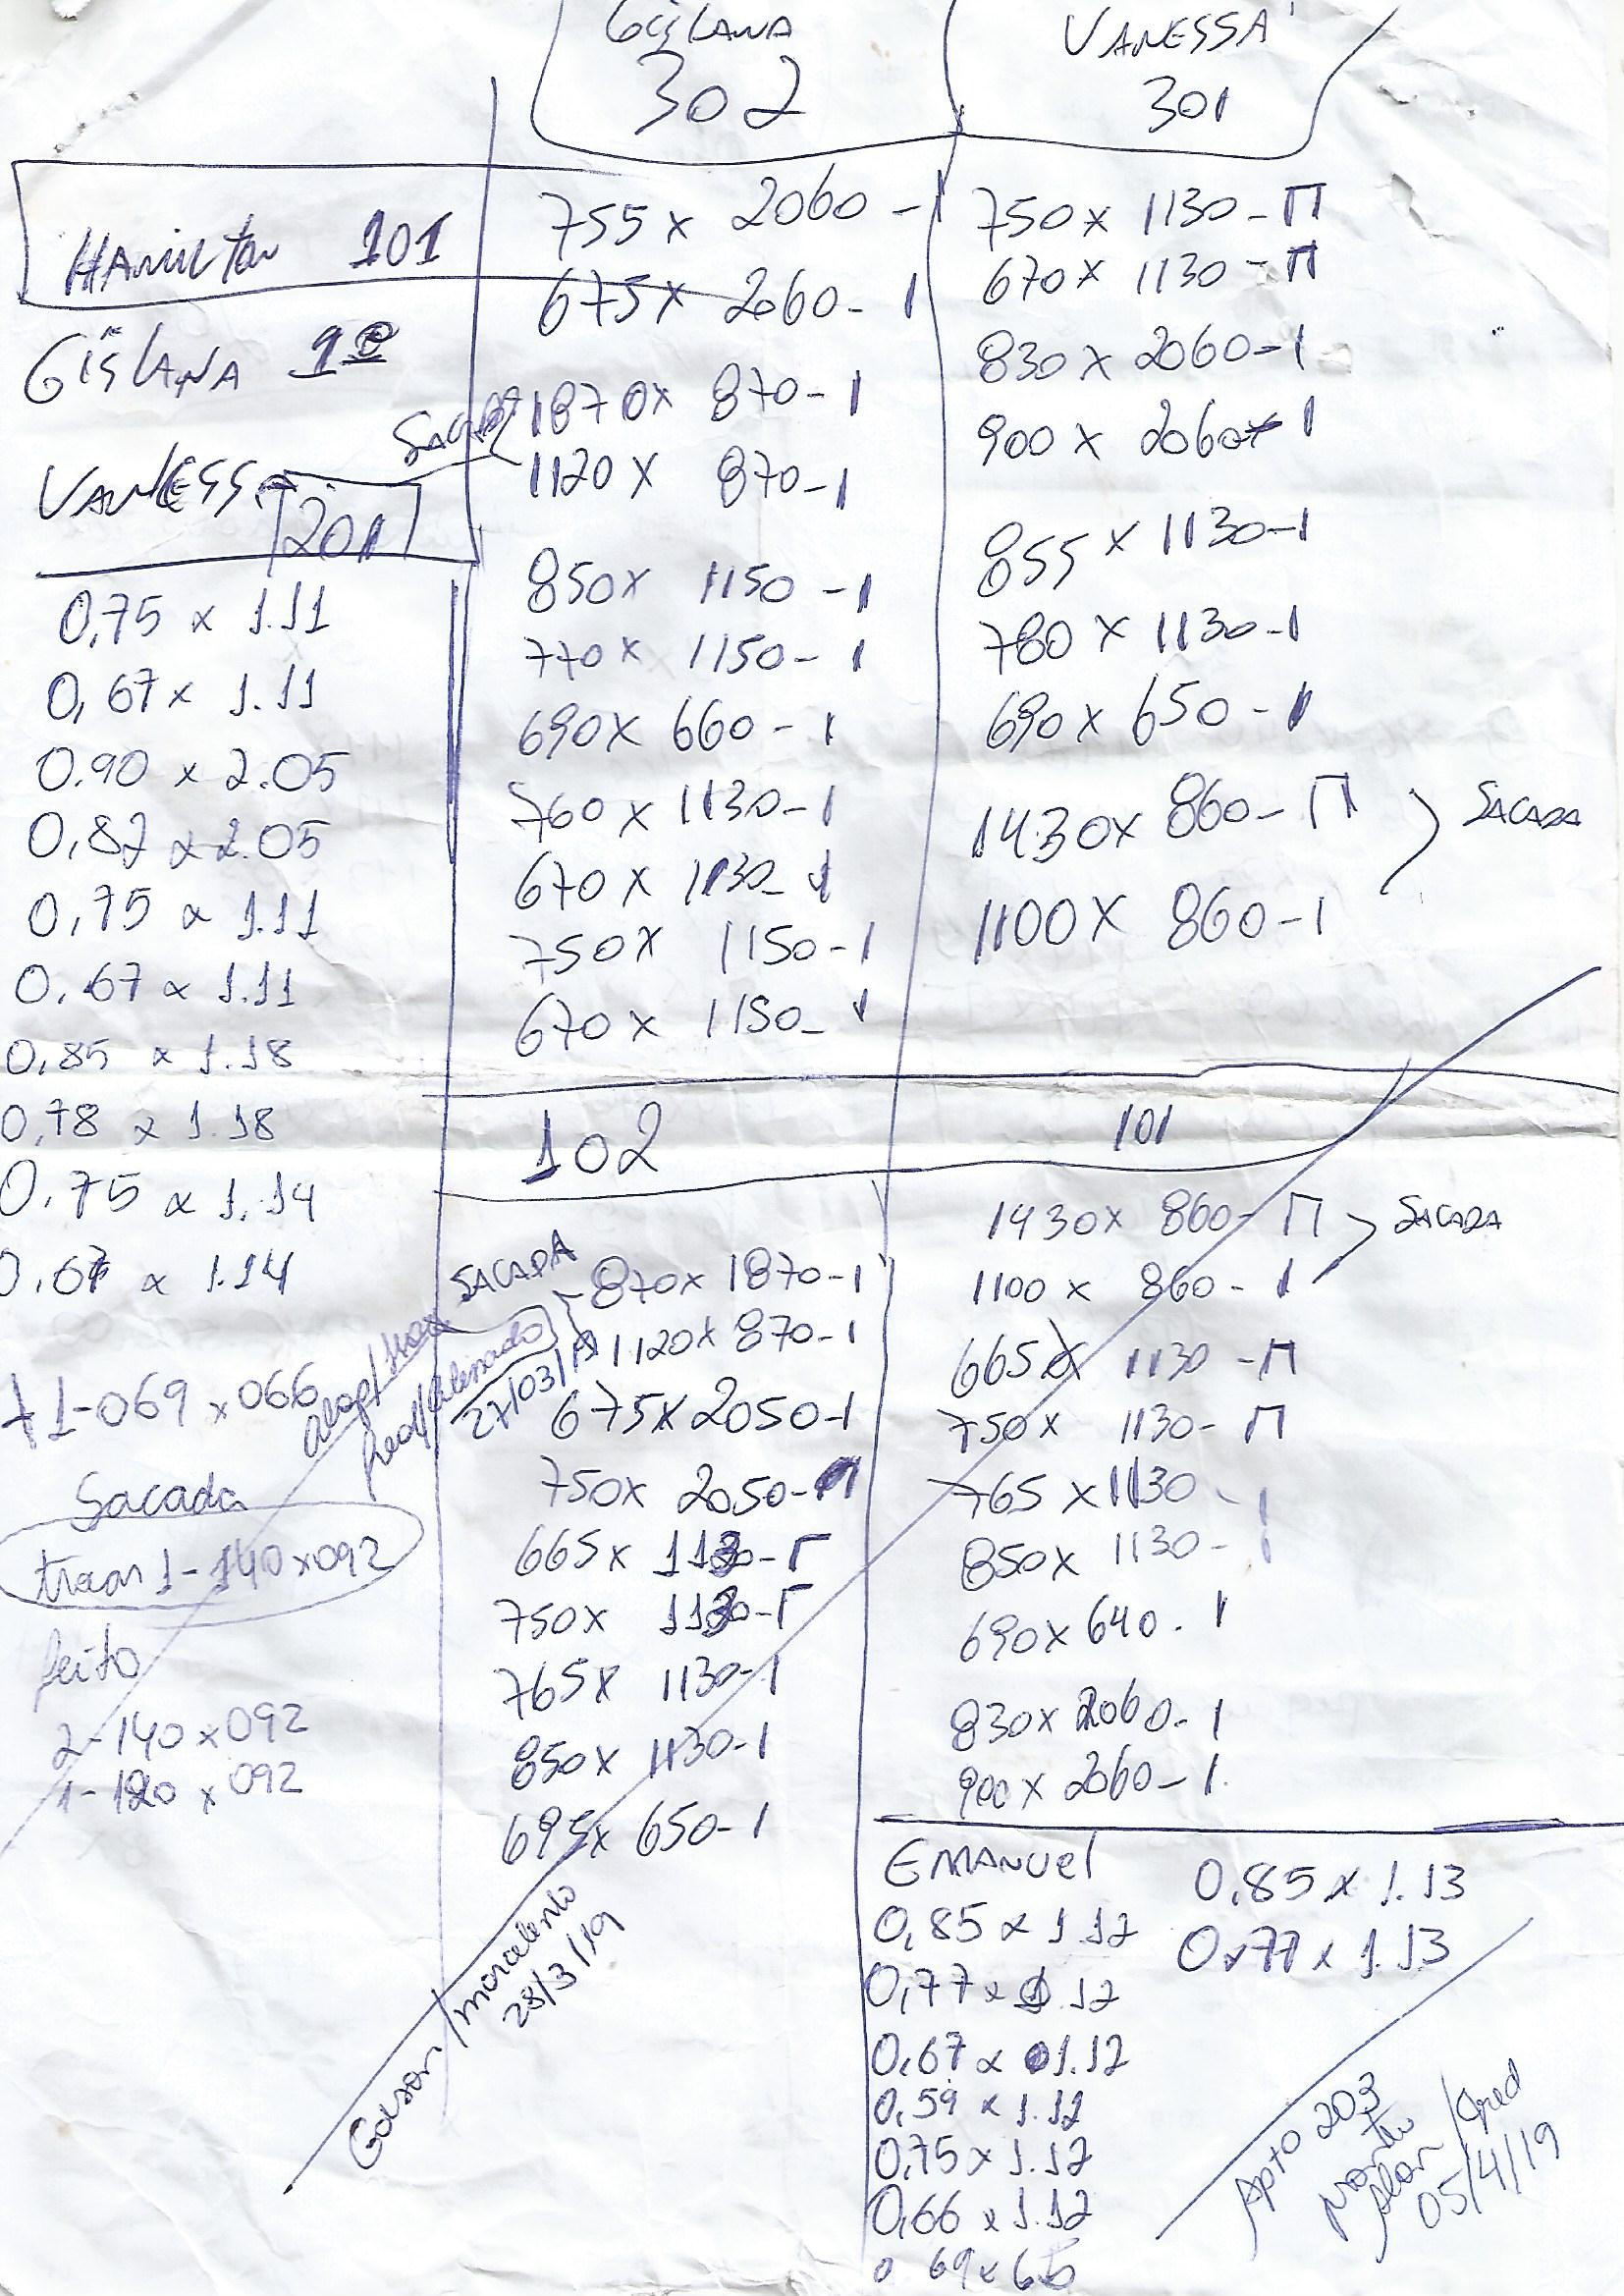 GisLANA
302
VANESSA
301
HAmiLton 101
GisLANA 1º
VANESSA
201
0,75 x 1.11
0,67 x 1.11
0.90 x 2.05
0,82 x 2.05
0,75 x 1.11
0,67 x 1.11
0,85 x 1.18
0,78 x 1.18
0,75 x 1.14
0,67 x 1.14
1-069 x 066
Sacada
1-140 x 092
feito
2-140 x 092
1-120 x 092
755 x 2060 - 1
675 x 2060 - 1
SACADA
1870 x 870 - 1
1120 x 870 - 1
850 x 1150 - 1
770 x 1150 - 1
690 x 660 - 1
760 x 1130 - 1
670 x 1130 - 1
750 x 1150 - 1
670 x 1150 - 1
750 x 1130 - Π
670 x 1130 - Π
830 x 2060 - 1
900 x 2060 - 1
855 x 1130 - 1
780 x 1130 - 1
690 x 650 - 1
1430 x 860 - Π
SACADA
1100 x 860 - 1
102
SACADA
870 x 1870 - 1
1120 x 870 - 1
27/03/19
675 x 2050 - 1
750 x 2050 - Π
665 x 1130 - Γ
750 x 1130 - Γ
765 x 1130 - 1
850 x 1130 - 1
695 x 650 - 1
28/3/19
101
1430 x 860 - Π
SACADA
1100 x 860 - 1
665 x 1130 - Π
750 x 1130 - Π
765 x 1130 - 1
850 x 1130 - 1
690 x 640 - 1
830 x 2060 - 1
900 x 2060 - 1
EMANUel
0,85 x 1.12
0,77 x 1.12
0,67 x 1.12
0,59 x 1.12
0,75 x 1.12
0,66 x 1.12
0 69 x 65
0,85 x 1.13
0,77 x 1.13
Apto 203
05/4/19